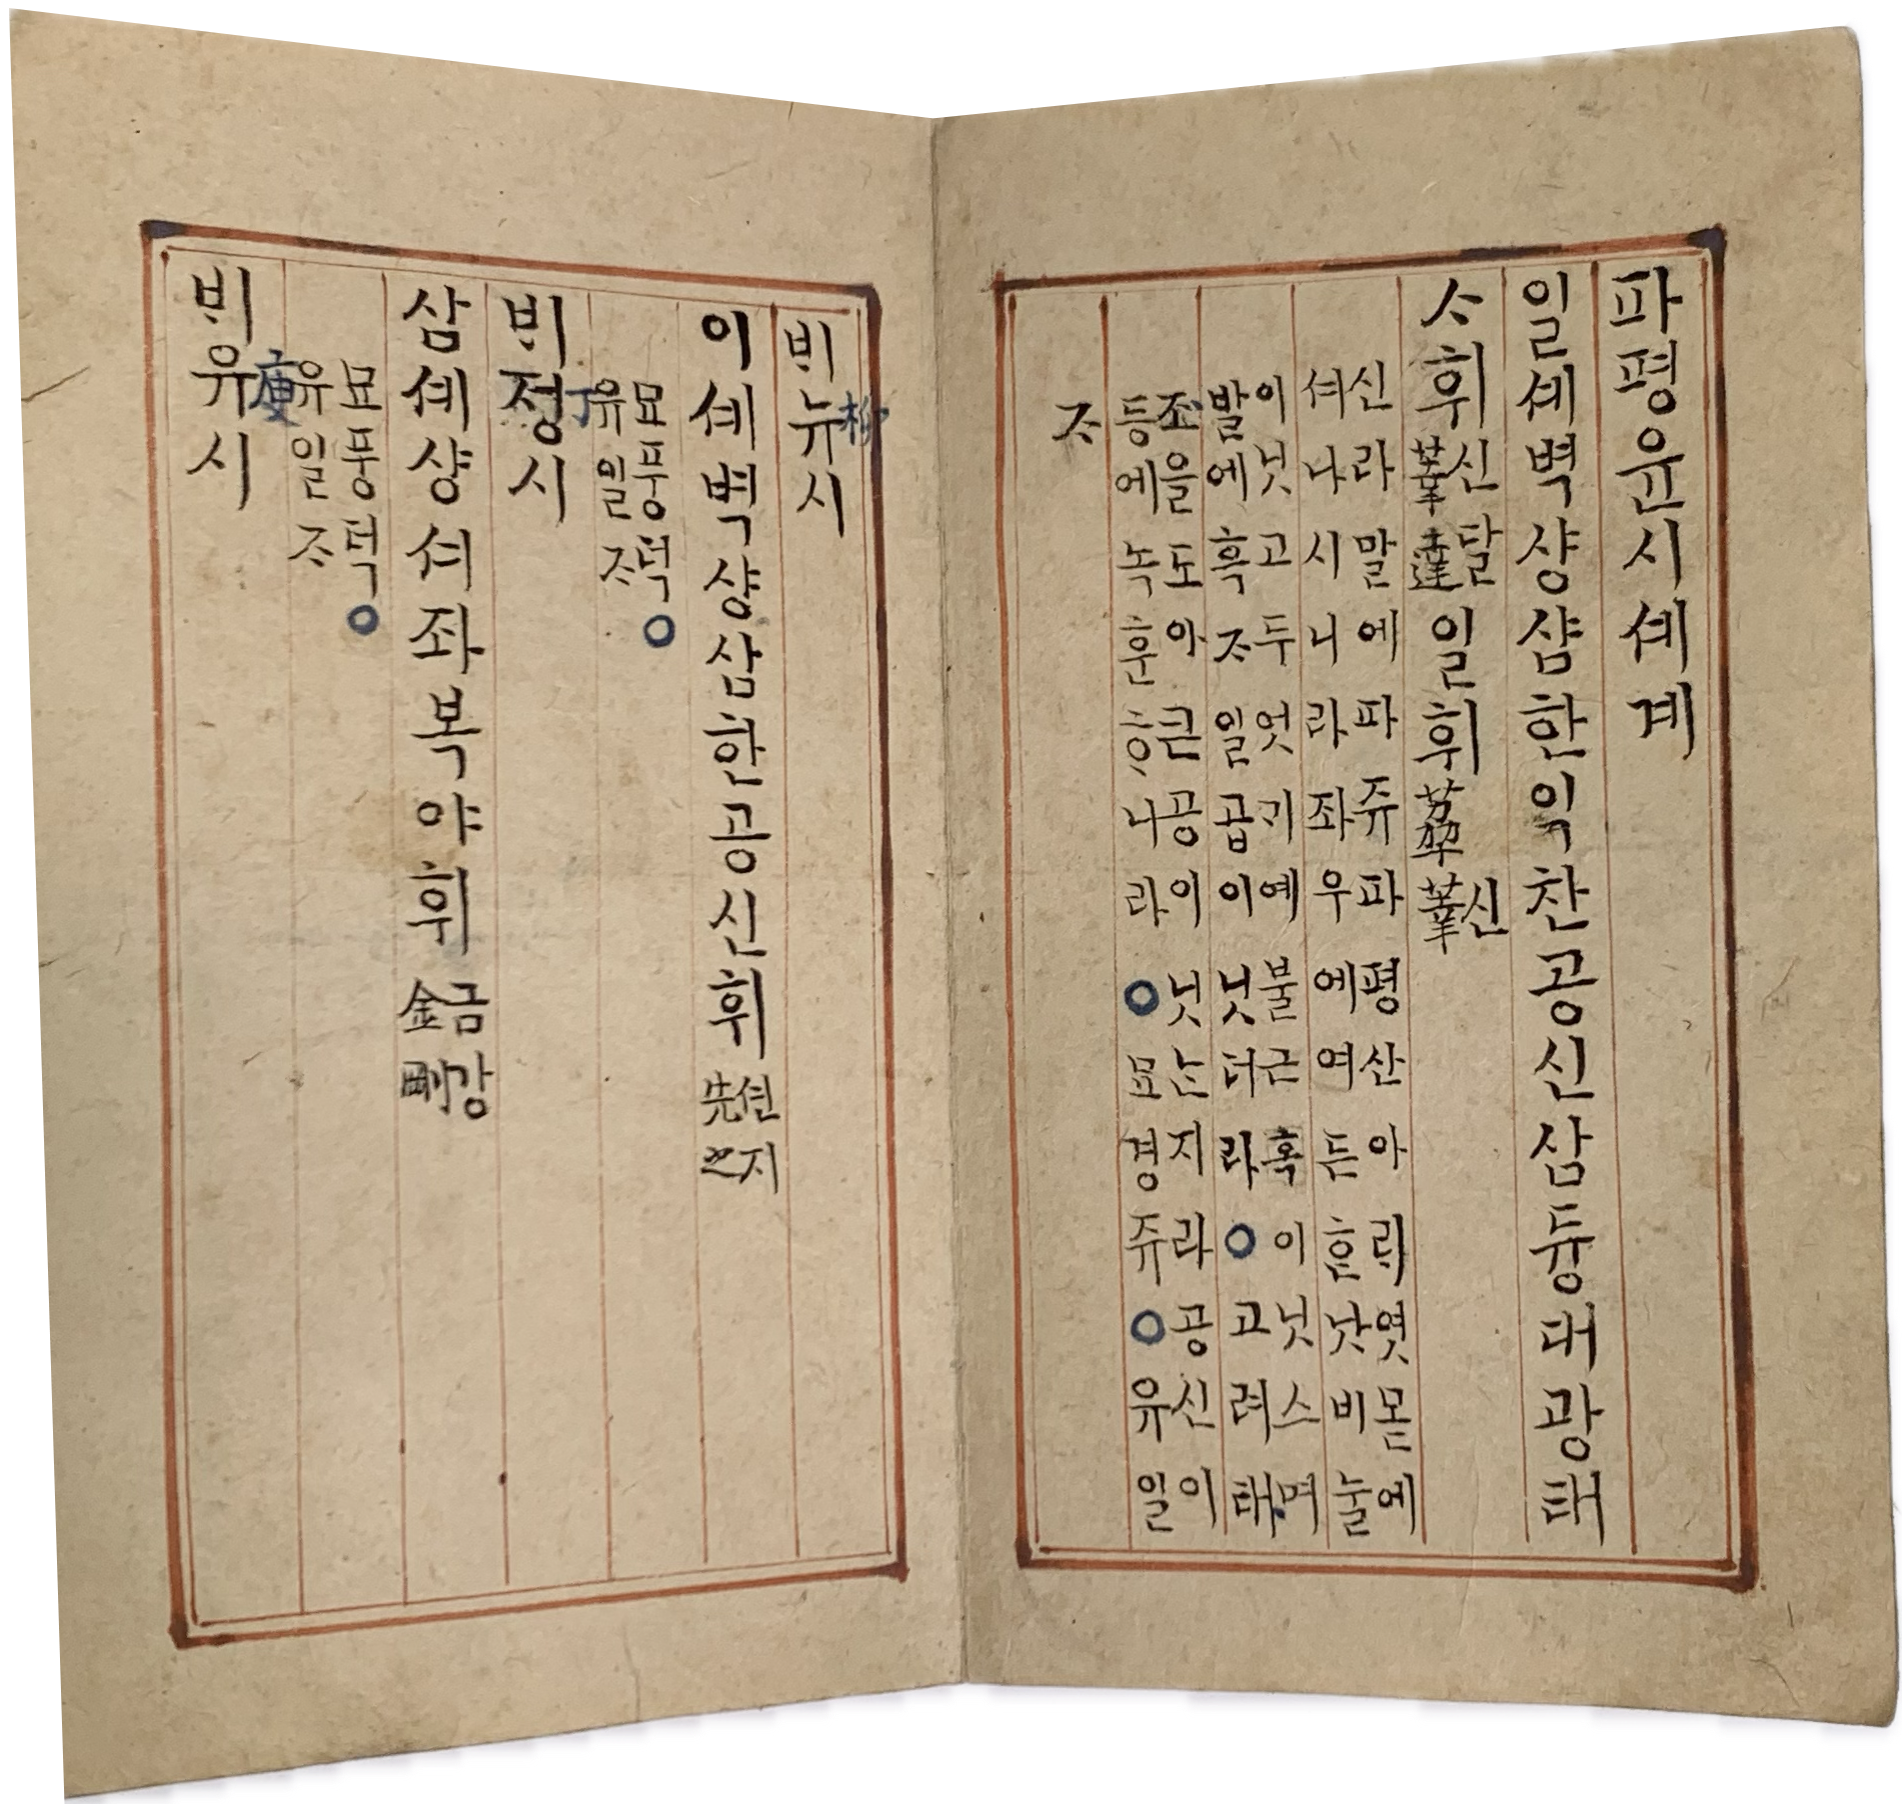 파평윤시셰계
일셰벽샹샴한익찬공신삼듕대광태
ᄉᆞ휘신莘달達일휘신莘
신라말에파쥬파평산아ᄅᆡ엿몯에
셔나시니라좌우에여든ᄒᆞᆫ낫비눌
이닛고두엇ᄀᆡ예불근혹이닛스며
발에흑ᄌᆞ일곱이닛더라○고려태
조을도아큰공이닛ᄂᆞᆫ지라공신이
등에녹훈ᄒᆞ니라○묘경쥬○유일
ᄌᆞ
ᄇᆡ뉴柳시
이셰벽샹삼한공신휘션先지之
묘풍덕○
유일ᄌᆞ
ᄇᆡ졍丁시
삼셰샹셔좌복야휘금金강剛
묘풍덕○
유일ᄌᆞ
ᄇᆡ유庾시